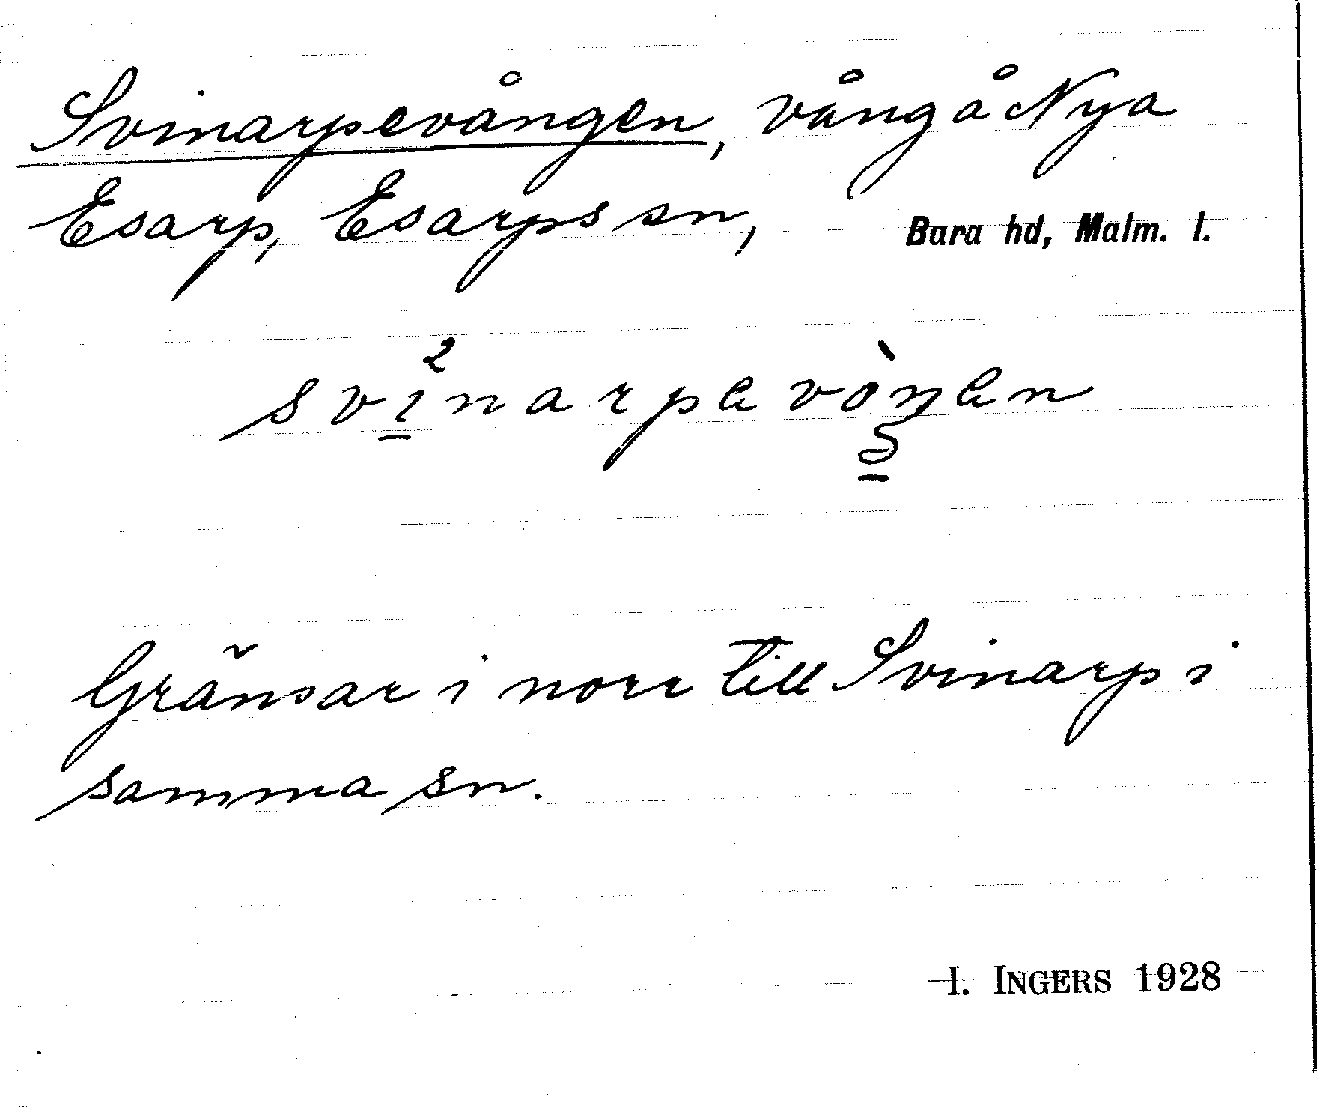 Svinarpevången, vång å Nya
Esarp, Esarps sn, Bara hd, Malm. l.
svinarpevòŋen
Gränsar i norr till Svinarp i
samma sn.
I. INGERS 1928